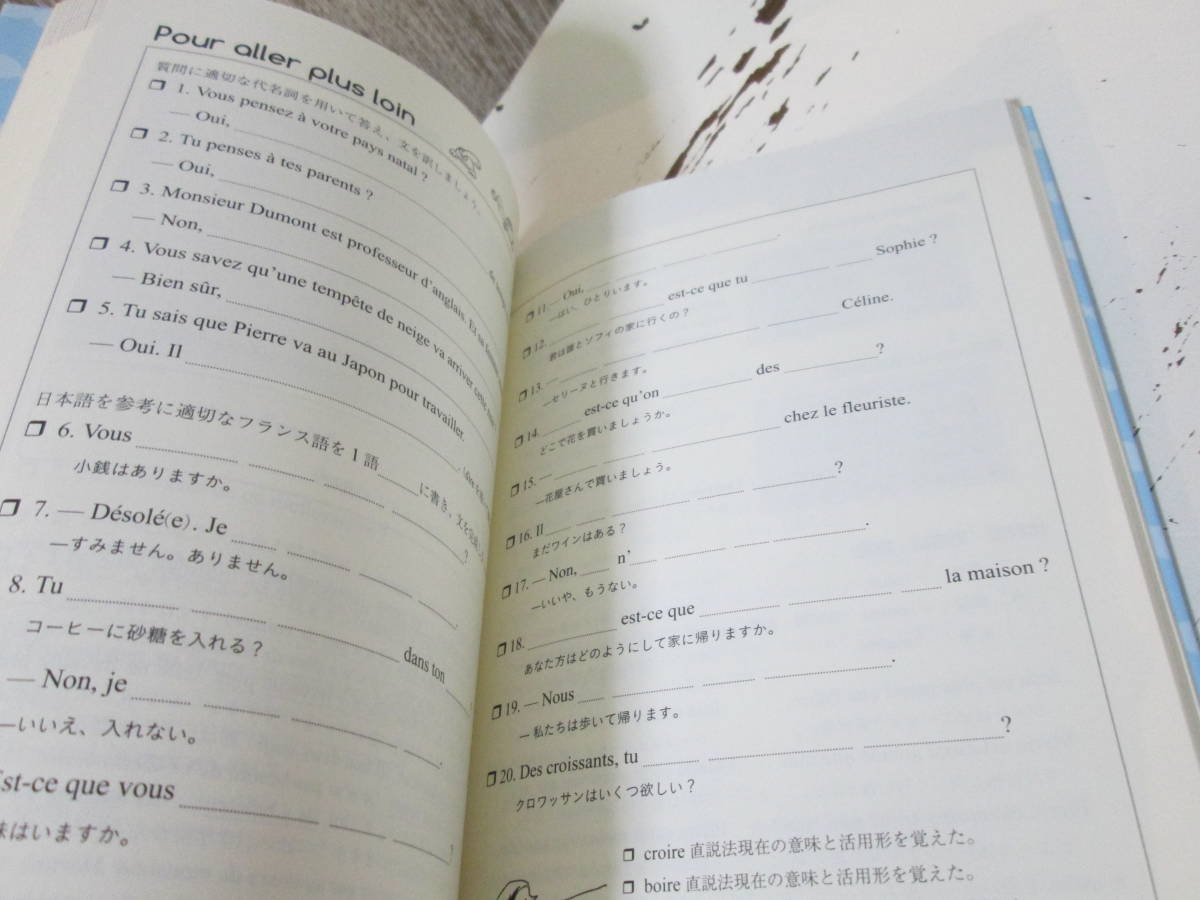 Pour aller plus loin
質問に適切な代名詞を用いて答え、文を訳しましょう。
1. Vous pensez à votre pays natal ?
— Oui,
2. Tu penses à tes parents ?
— Oui,
3. Monsieur Dumont est professeur d'anglais. Et
— Non,
4. Vous savez qu'une tempête de neige va arriver cette
— Bien sûr,
5. Tu sais que Pierre va au Japon pour travailler.
— Oui. Il
日本語を参考に適切なフランス語を1語 に書き、文を
6. Vous ?
小銭はありますか。
7. — Désolé(e). Je .
—すみません。ありません。
8. Tu dans ton
コーヒーに砂糖を入れる?
— Non, je .
—いいえ、入れない。
st-ce que vous ?
はいますか。
11. — Oui, .
—はい、ひとりいます。
12. est-ce que tu Sophie ?
君は誰とソフィの家に行くの?
13. — Céline.
—セリーヌと行きます。
14. est-ce qu'on des ?
どこで花を買いましょうか。
15. — chez le fleuriste.
—花屋さんで買いましょう。
16. Il ?
まだワインはある?
17. — Non, n' .
—いいや、もうない。
18. est-ce que la maison ?
あなた方はどのようにして家に帰りますか。
19. — Nous .
—私たちは歩いて帰ります。
20. Des croissants, tu ?
クロワッサンはいくつ欲しい?
croire 直説法現在の意味と活用形を覚えた。
boire 直説法現在の意味と活用形を覚えた。